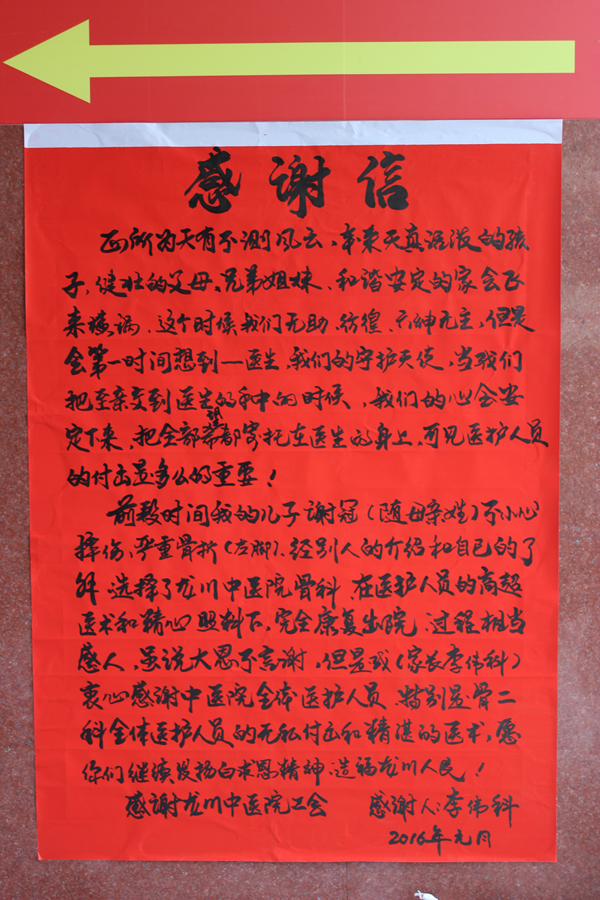 感谢信
正所为天有不测风云，本来天真活泼的孩
子，健壮的父母，兄弟姐妹、和谐安定的家会飞
来横祸、这个时候我们无助、彷徨、六神无主，但是
会第一时间想到一医生，我们的守护天使，当我们
把至亲交到医生的手中的时候，我们的心会安
定下来，把全部希望都寄托在医生的身上，可见医护人员
的付出是多么的重要！
前段时间我的儿子谢冠（随母亲姓）不小心
摔伤，严重骨折（左脚）、经别人的介绍和自已的了
解，选择了龙川中医院骨科，在医护人员的高超
医术和精心照料下，完全康复出院，过程相当
感人，虽说大恩不言谢，但是我（家长李伟科）
衷心感谢中医院全体医护人员，特别是骨二
科全体医护人员的无私付出和精湛的医术，愿
你们继续发扬白求恩精神，造福龙川人民！
感谢龙川中医院工会 感谢人：李伟科
2016年元月